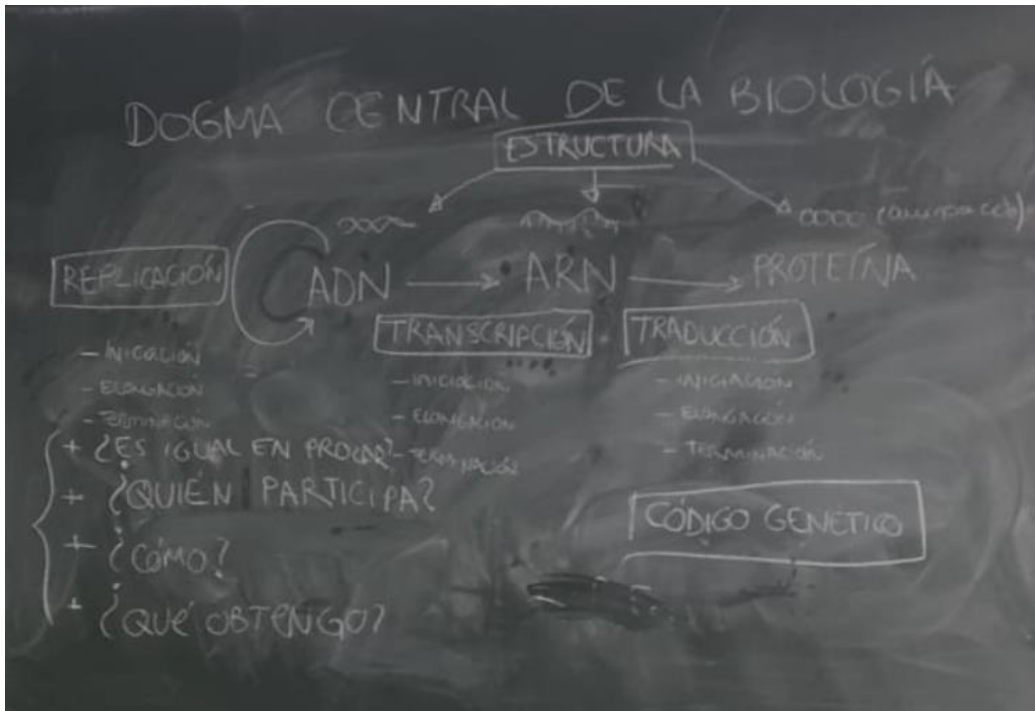 DOGMA CENTRAL DE LA BIOLOGÍA
ESTRUCTURA
REPLICACIÓN
ADN
ARN
PROTEÍNA
TRANSCRIPCIÓN
TRADUCCIÓN
- INICIACIÓN
- ELONGACIÓN
- TERMINACIÓN
- INICIACIÓN
- ELONGACIÓN
- TERMINACIÓN
- INICIACIÓN
- ELONGACIÓN
- TERMINACIÓN
+ ¿ES IGUAL EN PROCAR?
+ ¿QUIÉN PARTICIPA?
+ ¿CÓMO?
+ ¿QUÉ OBTENGO?
CÓDIGO GENÉTICO